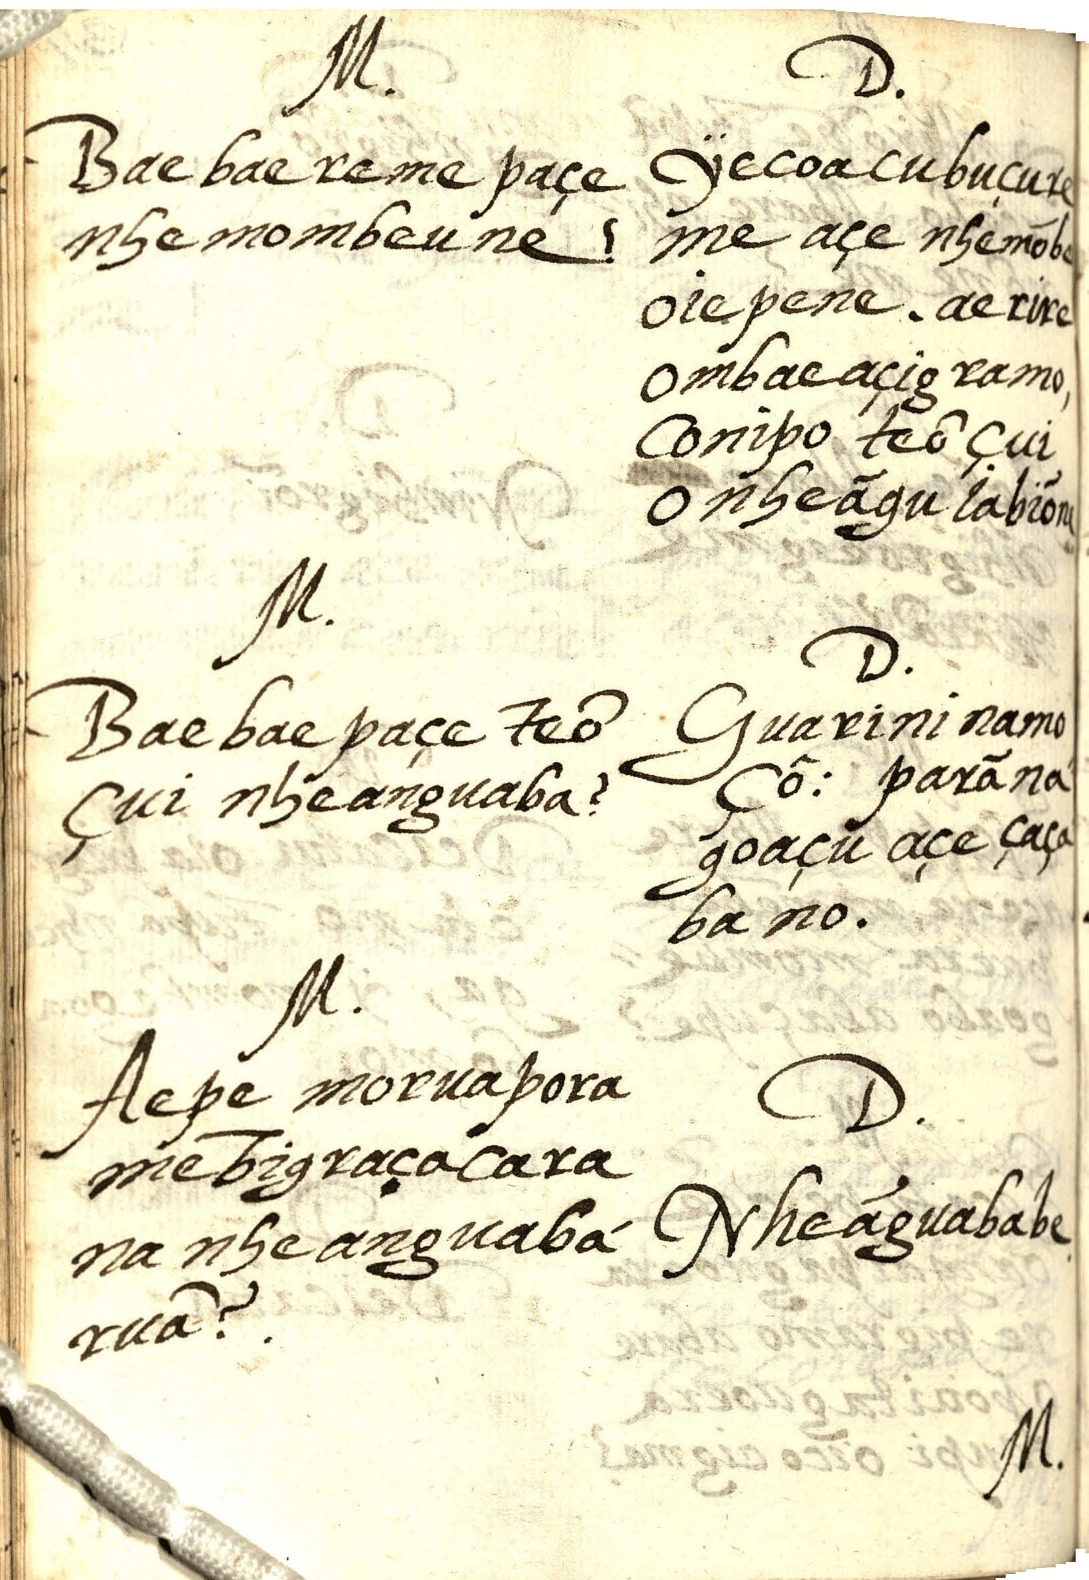 M.
Bae bae reme paçe
nhe mombeu ne?
D.
Ÿecoacubuçure
me açe nhemõbe
oiepene. aerire
ombaeaçig ramo,
Conipo teõ çui
onheãgu iabiõn
M.
Bae bae paçe teõ
çui nheanguaba?
D.
Guarini namo
çõ: parãna
goaçu açe çaça
ba no.
M.
Aepe moruapora
mebigraçaçara
na nheanguabá
ruã?.
D.
Nheãguababe
M.